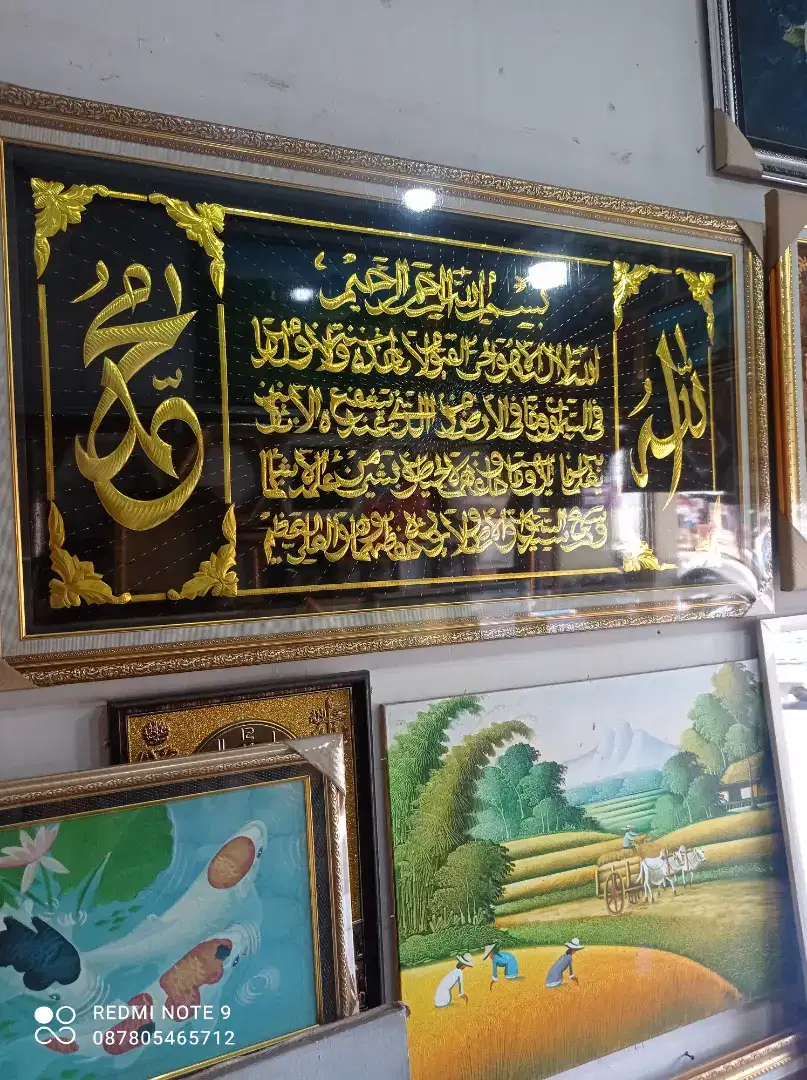 الله
بسم الله الرحمن الرحيم
الله لا اله الا هو الحي القيوم لا تأخذه سنة ولا نوم له ما
في السموات وما في الارض من ذا الذي يشفع عنده الا باذنه
يعلم ما بين ايديهم وما خلفهم ولا يحيطون بشيء من علمه الا بما شاء
وسع كرسيه السموات والارض ولا يؤده حفظهما وهو العلي العظيم
محمد
REDMI NOTE 9
087805465712